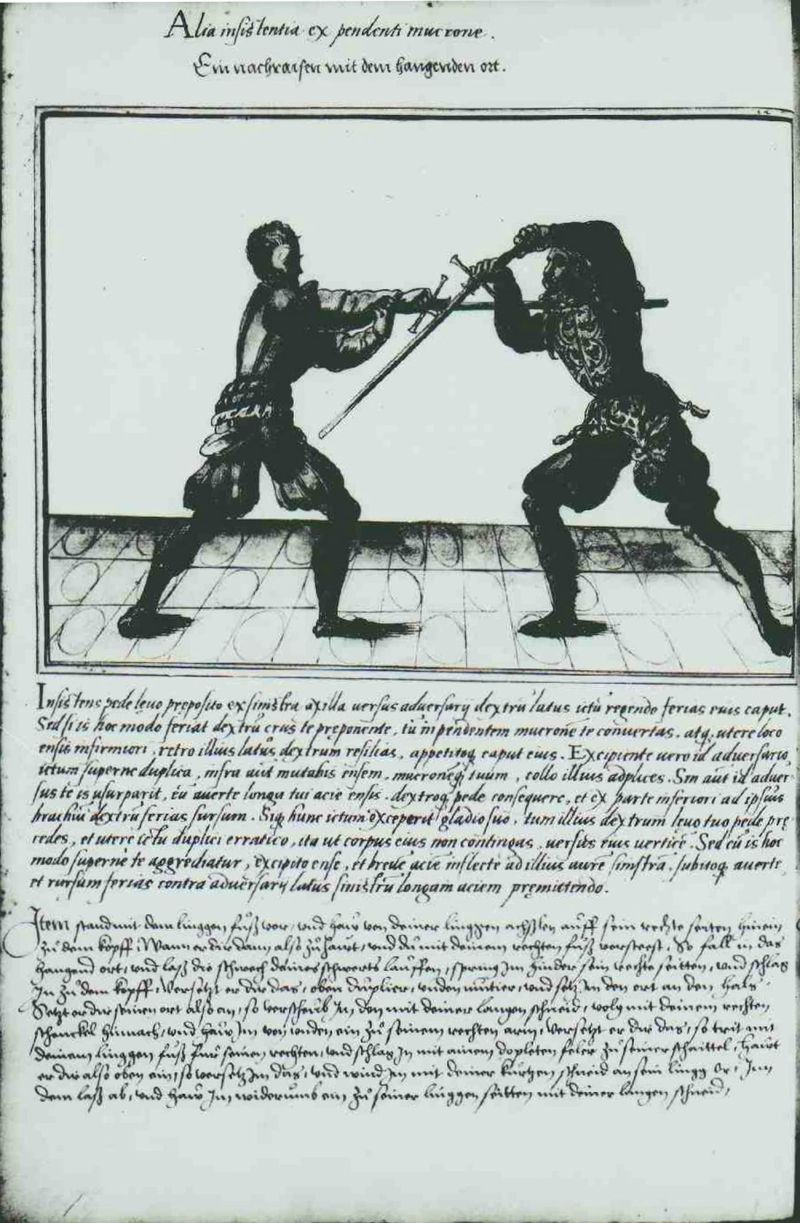 Alia insistentia ex pendenti mucrone.
Ein nachraisen mit dem hangenden ort.
Insistens pede levo preposito ex sinistra axilla versus adversarij dextrũ latus ictũ regendo ferias eius caput.
Sed si is hoc modo feriat dextrũ crus te preponente, tu in pendentem mucronẽ te convertas, atq. utere loco
ensis infirmiori, retro illius latus dextrum resilias, appetitoq. caput eius. Excipiente vero id adversario,
ictum superne duplica, infra aut mutabis ensem, mucroneq. tuum, collo illius adplices. Sin aut id adver
sus te is usurparit, eũ averte longa tui acie ensis, dextroq. pede consequere, et ex parte inferiori ad ipsius
brachiũ dextrũ ferias sursum. Siq. hunc ictum exceperit gladio suo, tum illius dextrum levo tuo pede prę
cedes, et utere ictu duplici erratico, ita ut corpus eius non contingas, versus eius verticẽ. Sed cũ is hoc
modo superne te aggrediatur, excipito ense, et brede acie inflecte ad illius aurẽ sinistrã, subitoq. averte,
et rursum ferias contra adversarij latus sinistrũ longam aciem pręmittendo.
Item stand mit dem linggen fuß vor, und haw von deiner linggen achslen auff sein rechte seiten hinein
zů dem kopff, Wann er dir dann also zůhawt, und du mit deinem rechten fuß vorsteest, So fall in das
hangend ort, und laß die schwech deines schwerts lauffen, spring Im hinder sein rechte seitten, und schlag
In zů dem kopff, Versetzt er dir das, oben duplier, unden mutier, und setz Im den ort an den hals,
Setzt er dir seinen ort also an, so verscheub In den mit deiner langen schneid, volg mit deinem rechten
schenckel hinnach, und haw Im von unden ein zů seinem rechten arm, Versetzt er dir das, so trit mit
deinem linggen fuß für seinen rechten, und schlag In mit ainem dopleten feler zů seiner schaittel, hawt
er dir also oben ein, so versetz Im das, und wind Im mit deiner kurtzen schneid an sein lingg or, Inn
dem laß ab, und haw Im widerumb ein zů seiner linggen seitten mit deiner langen schneid,